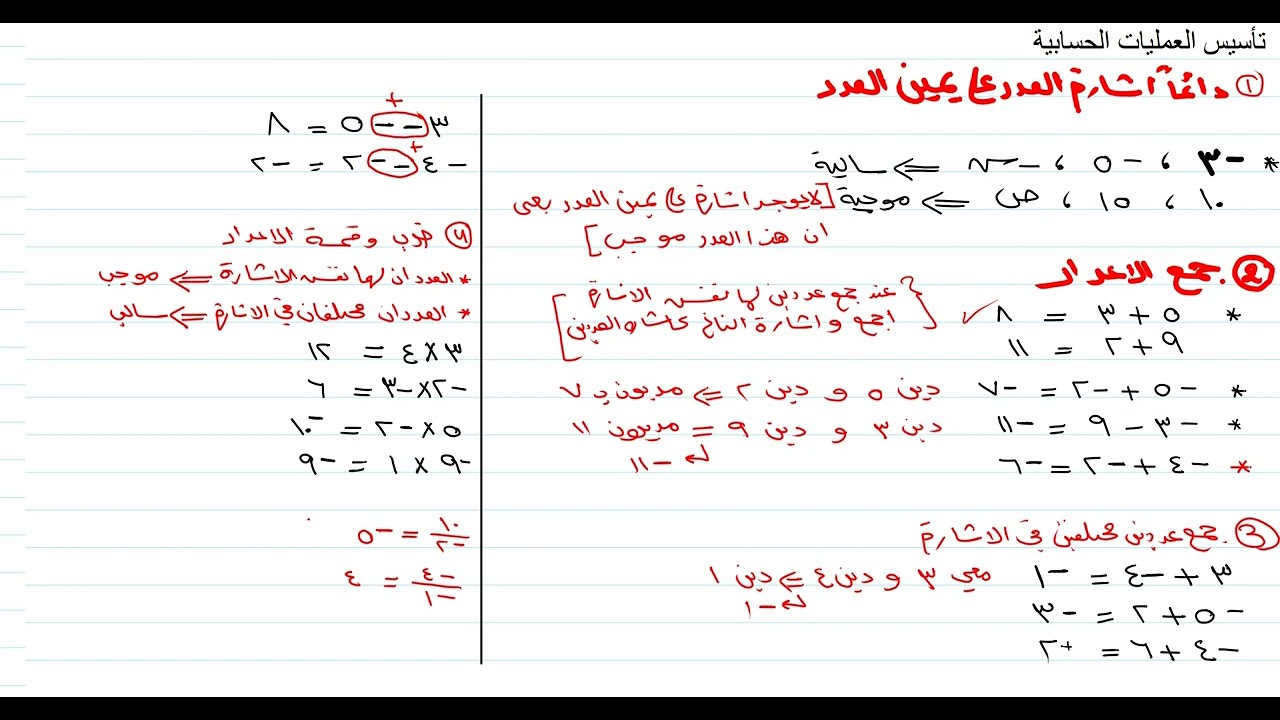 تأسيس العمليات الحسابية
① دائماً اشارة العدد على يمين العدد
* -٣ ، -٥ ، -س ⇐ سالبة
١٠ ، ١٥ ، ص ⇐ موجبة [لا يوجد اشارة على يمين العدد يعني
ان هذا العدد موجب]
② جمع الاعداد
* ٥ + ٣ = ٨ ✓
٩ + ٢ = ١١
{عند جمع عددين لها نفس الاشارة
اجمع واشارة الناتج كاشارة العددين}
* -٥ + -٢ = -٧ دين ٥ و دين ٢ ⇐ مديون بـ ٧
* -٣ - ٩ = -١١ دين ٣ و دين ٩ = مديون ١١
↵ -١١
* -٤ + -٢ = -٦
③ جمع عددين مختلفين في الاشارة
٣ + -٤ = -١ معي ٣ و دين ٤ ⇐ دين ١
↵ -١
-٥ + ٢ = -٣
-٤ + ٦ = +٢
+
٣ - -٥ = ٨
+
-٤ - -٢ = -٢
④ ضرب وقسمة الاعداد
* العددان لها نفس الاشارة ⇐ موجب
* العددان مختلفان في الاشارة ⇐ سالب
٣ × ٤ = ١٢
-٢ × -٣ = ٦
٥ × -٢ = -١٠
-٩ × ١ = -٩
١٠/-٢ = -٥
-٤/-١ = ٤